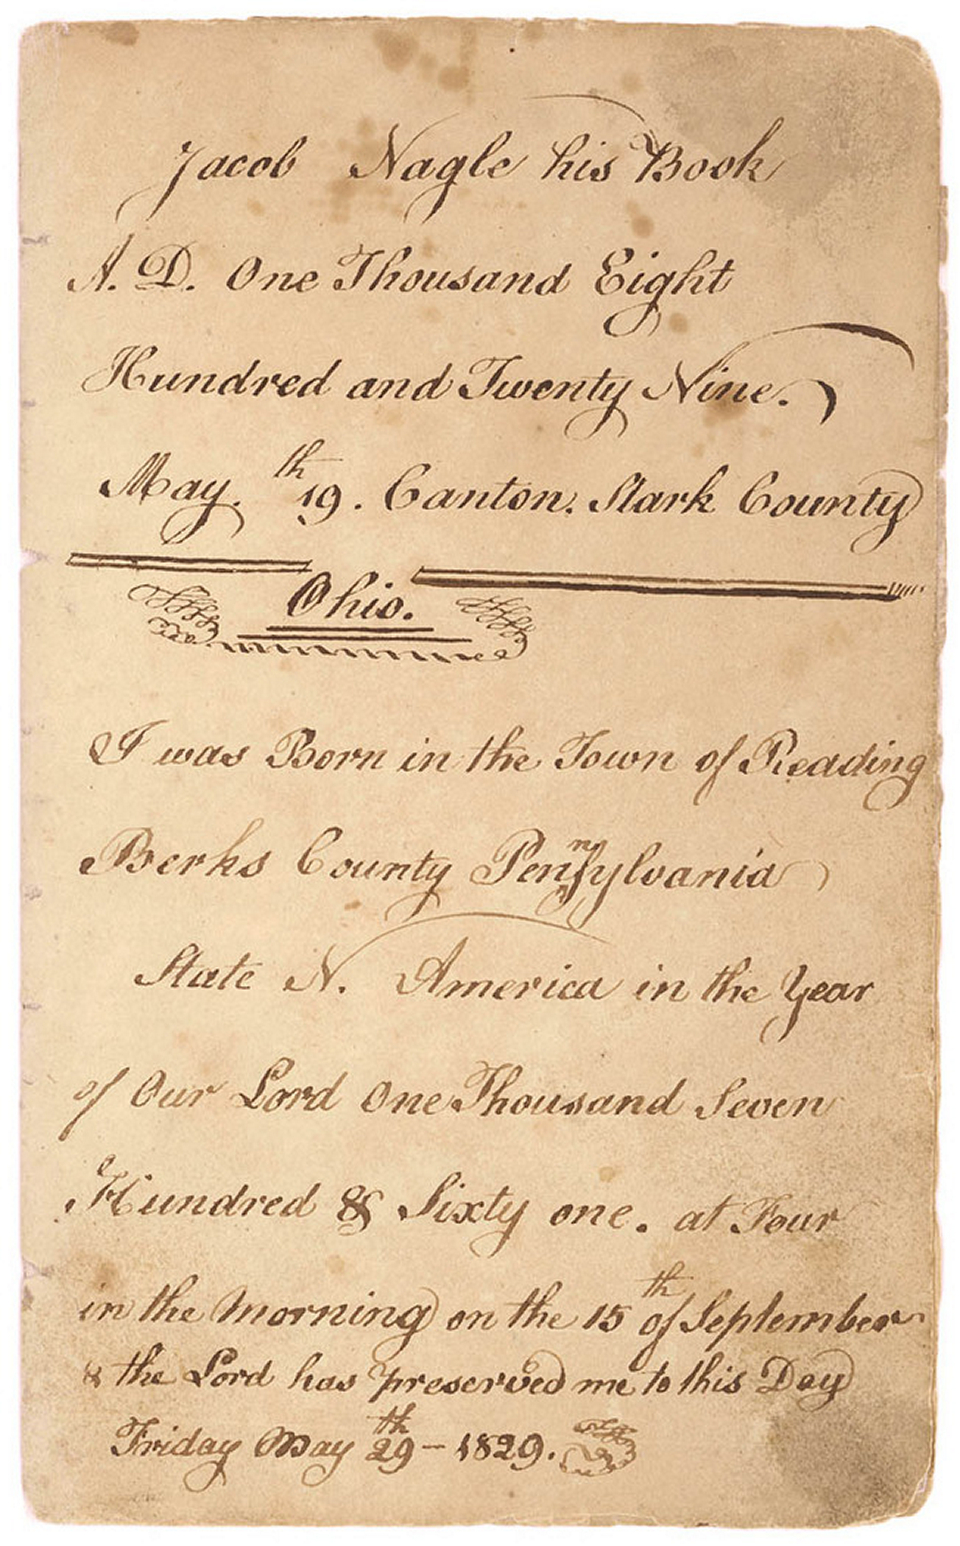 Jacob Nagle his Book
A. D. One Thousand Eight
Hundred and Twenty Nine.
May. 19th. Canton. Stark County
Ohio.
I was Born in the Town of Reading
Berks County Pennsylvania
State N. America in the Year
of Our Lord One Thousand Seven
Hundred & Sixty one. at Four
in the Morning on the 15th of September
& the Lord has preserved me to this Day
Friday May 29th - 1829.